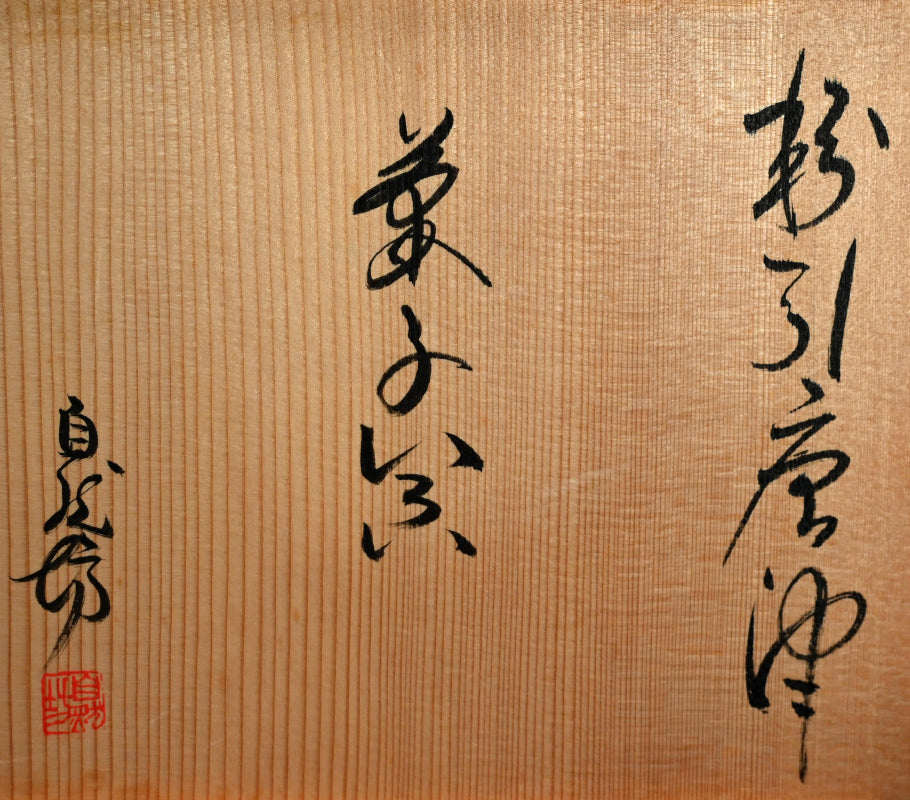 粉引唐津
菓子器
自然坊